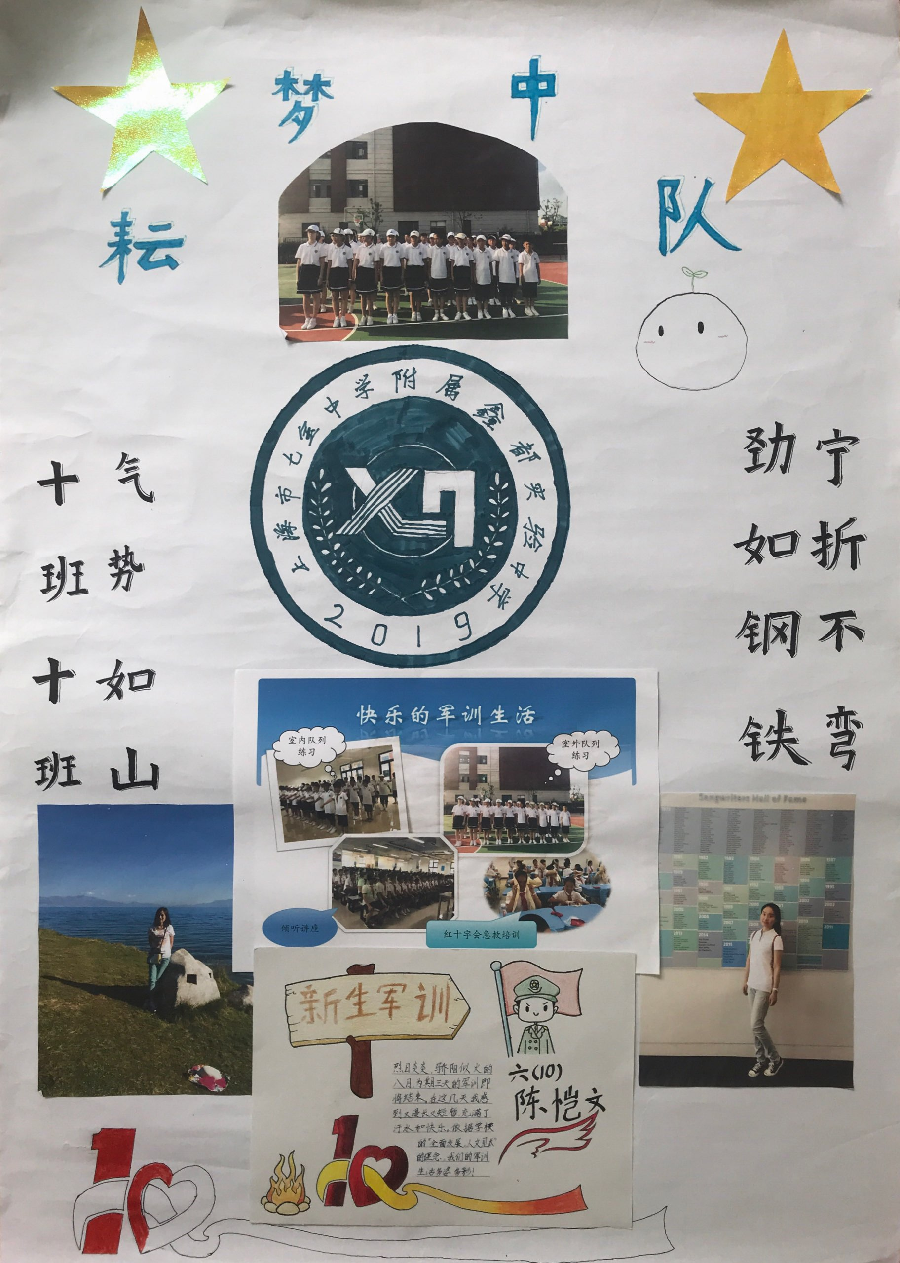 耘梦中队
上海市七宝中学附属鑫都实验中学
2019
十班十班
气势如山
宁折不弯
劲如钢铁
快乐的军训生活
室内队列
练习
室外队列
练习
倾听讲座
红十字会急救培训
Songwriters Hall of Fame
新生军训
六(10)
陈恺文
烈日炎炎 骄阳似火的
八月为期三天的军训即
将结束。在这几天我感
到又漫长又短暂充满了
汗水和快乐。依据学校
的"全面发展、人文见长"
的理念，我们的军训
生活多姿多彩！
10
10